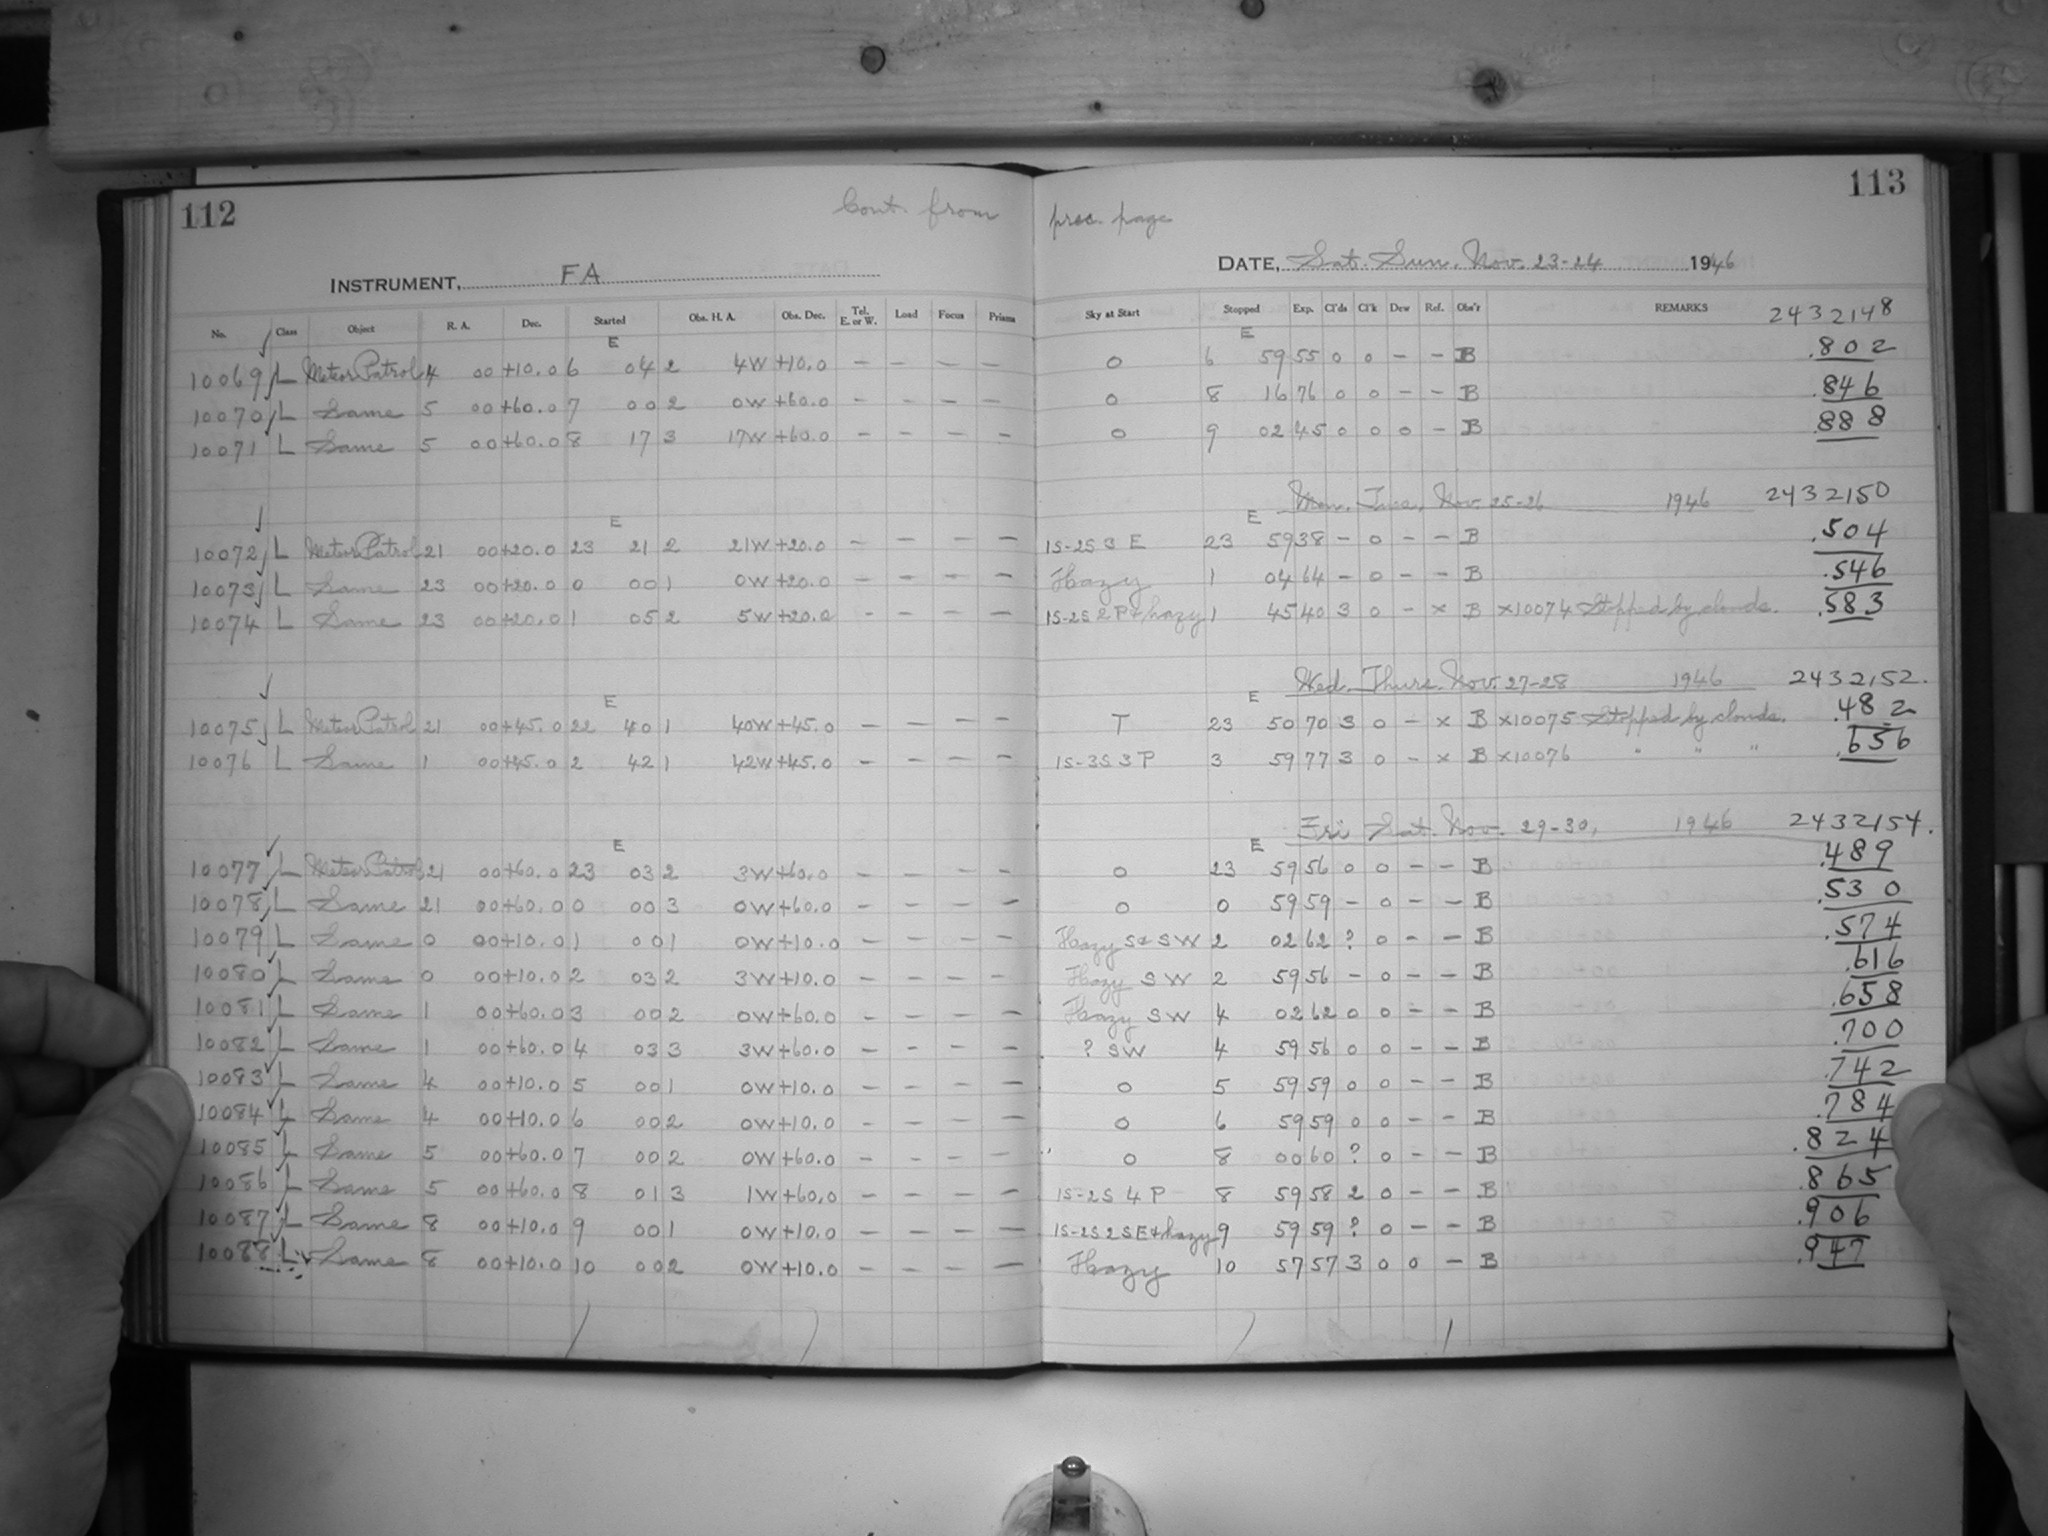 112
113
Cont. from prec. page
INSTRUMENT, FA
DATE, Sat. Sun. Nov. 23-24 1946
No. Class Object R. A. Dec. Started Obs. H. A. Obs. Dec. Tel. E. or W. Load Focus Prisms Sky at Start Stopped Exp. Cl'ds Cl'k Dew Ref. Obs'r REMARKS 2432148
E E
10069 L Meteor Patrol 4 00 +10.0 6 04 2 4W +10.0 – – – – 0 6 59 55 0 0 – – B .802
10070 L Same 5 00 +60.0 7 00 2 0W +60.0 – – – – 0 8 16 76 0 0 – – B .846
10071 L Same 5 00 +60.0 8 17 3 17W +60.0 – – – – 0 9 02 45 0 0 0 – B .888
Mon. Tues. Nov. 25-26 1946 2432150
E E
10072 L Meteor Patrol 21 00 +20.0 23 21 2 21W +20.0 – – – – 1S-2S 3 E 23 59 38 – 0 – – B .504
10073 L Same 23 00 +20.0 0 00 1 0W +20.0 – – – – Hazy 1 04 64 – 0 – – B .546
10074 L Same 23 00 +20.0 1 05 2 5W +20.0 – – – – 1S-2S 2 P + hazy 1 45 40 3 0 – x B x10074 Stopped by clouds. .583
Wed. Thurs. Nov. 27-28 1946 2432152.
E E
10075 L Meteor Patrol 21 00 +45.0 22 40 1 40W +45.0 – – – – T 23 50 70 3 0 – x B x10075 Stopped by clouds. .482
10076 L Same 1 00 +45.0 2 42 1 42W +45.0 – – – – 1S-3S 3 P 3 59 77 3 0 – x B x10076 " " " .656
Fri Sat. Nov. 29-30, 1946 2432154.
E E
10077 L Meteor Patrol 21 00 +60.0 23 03 2 3W +60.0 – – – – 0 23 59 56 0 0 – – B .489
10078 L Same 21 00 +60.0 0 00 3 0W +60.0 – – – – 0 0 59 59 – 0 – – B .530
10079 L Same 0 00 +10.0 1 00 1 0W +10.0 – – – – Hazy S & SW 2 02 62 ? 0 – – B .574
10080 L Same 0 00 +10.0 2 03 2 3W +10.0 – – – – Hazy SW 2 59 56 – 0 – – B .616
10081 L Same 1 00 +60.0 3 00 2 0W +60.0 – – – – Hazy SW 4 02 62 0 0 – – B .658
10082 L Same 1 00 +60.0 4 03 3 3W +60.0 – – – – ? SW 4 59 56 0 0 – – B .700
10083 L Same 4 00 +10.0 5 00 1 0W +10.0 – – – – 0 5 59 59 0 0 – – B .742
10084 L Same 4 00 +10.0 6 00 2 0W +10.0 – – – – 0 6 59 59 0 0 – – B .784
10085 L Same 5 00 +60.0 7 00 2 0W +60.0 – – – – 0 8 00 60 ? 0 – – B .824
10086 L Same 5 00 +60.0 8 01 3 1W +60.0 – – – – 1S-2S 4 P 8 59 58 2 0 – – B .865
10087 L Same 8 00 +10.0 9 00 1 0W +10.0 – – – – 1S-2S 2 SE + hazy 9 59 59 ? 0 – – B .906
10088 L Same 8 00 +10.0 10 00 2 0W +10.0 – – – – Hazy 10 57 57 3 0 0 – B .947